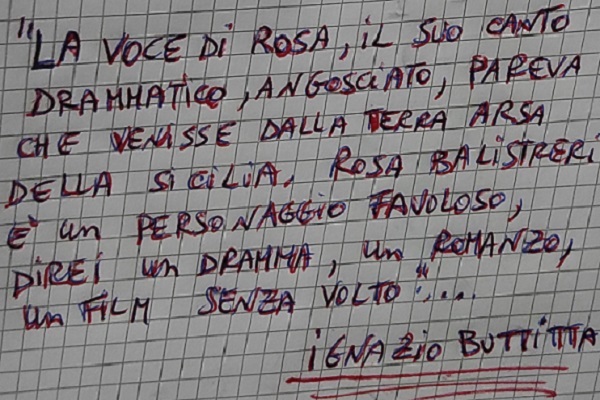 "LA VOCE Di ROSA, iL SUO CANTO
DRAMMATiCO, ANGOSCiATO, PAREVA
CHE VENISSE DALLA TERRA ARSA
DELLA SiCiLiA. ROSA BALISTRERI
E' un PERSONAGGiO FAVOLOSO,
DiREi un DRAMMA, un ROMANZO,
un FiLM SENZA VOLTO"....
iGNAZio BUTTiTTA